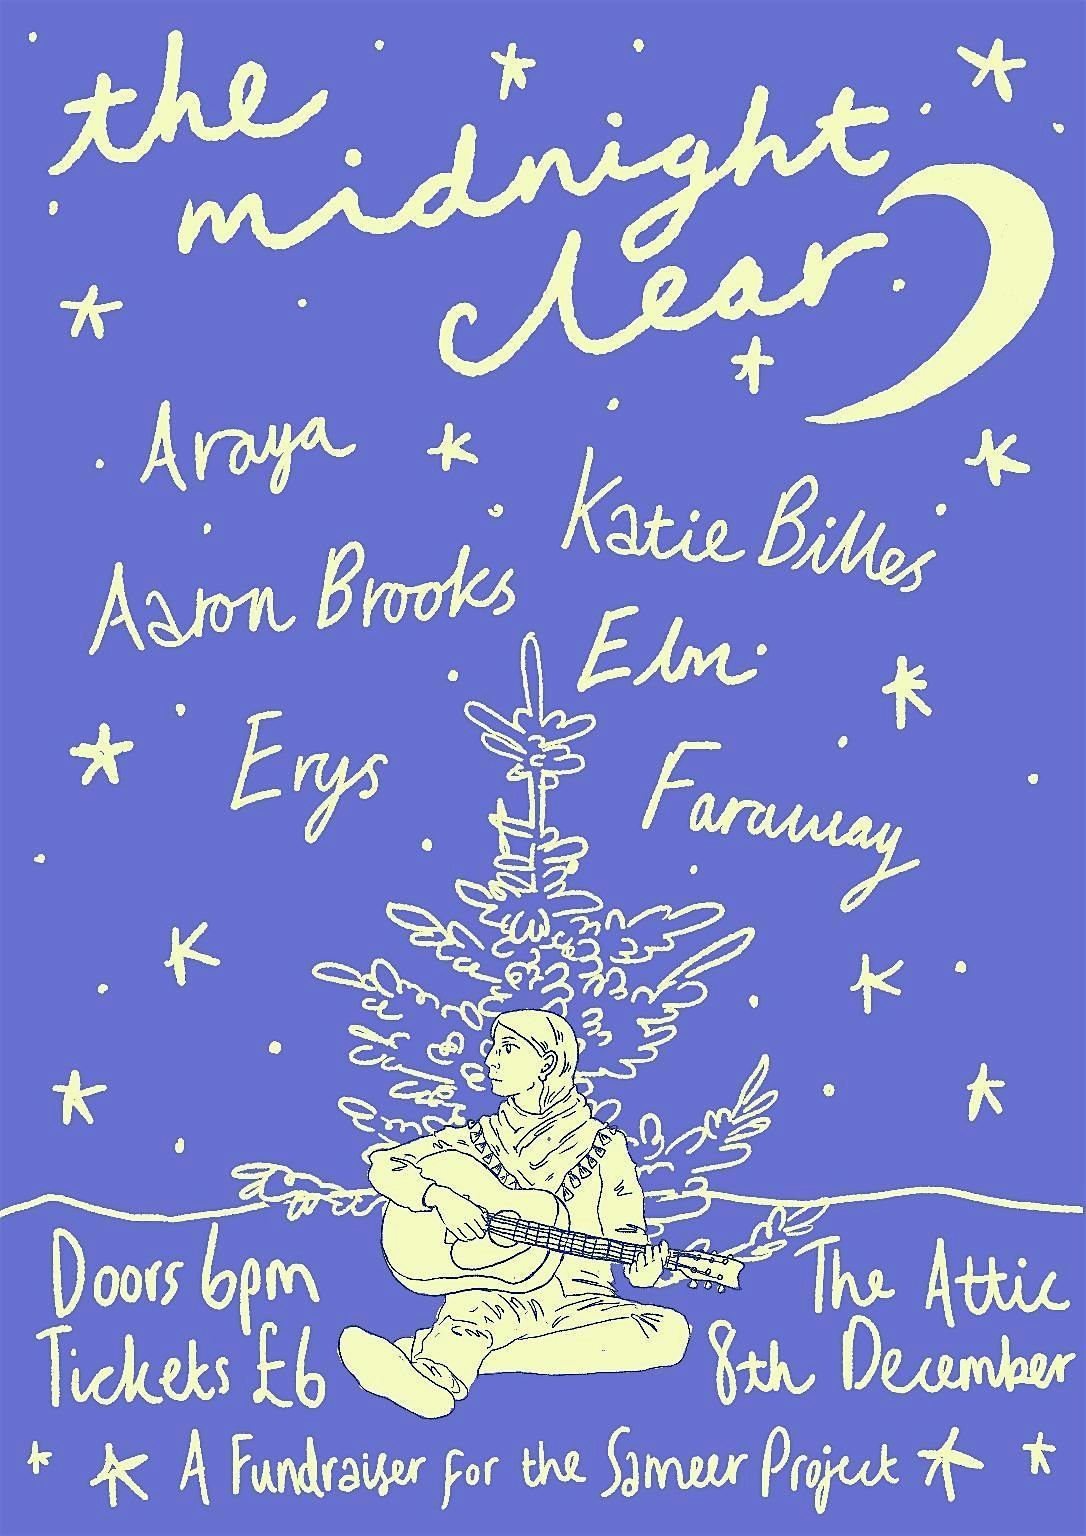 the
midnight
clear
Araya
Katie Billes
Aaron Brooks
Elm
Erys
Faraway
Doors 6pm
Tickets £6
The Attic
8th December
A Fundraiser for the Sameer Project